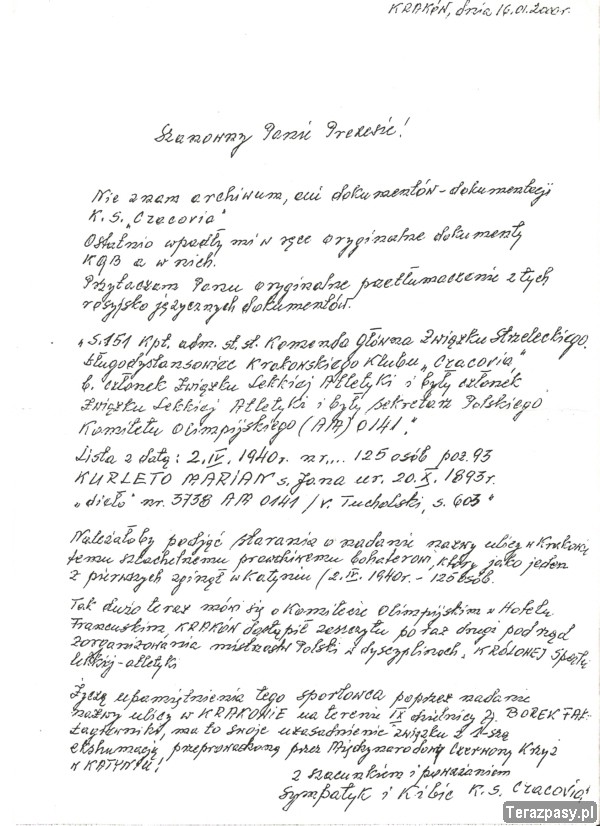 KRAKÓW, dnia 16.01.2000r.
Szanowny Panie Prezesie!
Nie znam archiwum, ani dokumentów-dokumentacji
K.S. „Cracovia"
Ostatnio wpadły mi w ręce oryginalne dokumenty
KGB a w nich.
Przytaczam Panu oryginalne przetłumaczenie z tych
rosyjsko języcznych dokumentów.
„S.151 Kpt. adm. st. st. Komenda Główna Związku Strzeleckiego.
Długodystansowiec Krakowskiego Klubu „Cracovia"
b. członek Związku Lekkiej Atletyki i były członek
Związku Lekkiej Atletyki i były sekretarz Polskiego
Komitetu Olimpijskiego (AM) 0141."
Lista z datą: 2.IV.1940r. nr.... 125 osób poz. 93
KURLETO MARIAN s. Jana ur. 20.X.1893r.
„dieło" nr. 3738 AM 0141 / V. Tucholski, s. 603"
Należałoby podjąć starania o nadanie nazwy ulicy w Krakowie
temu szlachetnemu prawdziwemu bohaterowi, który jako jeden
z pierwszych zginął w Katyniu (2.IV.1940r. - 125 osób.
Tak dużo teraz mówi się o Komitecie Olimpijskim w Hotelu
Francuskim, KRAKÓW dostąpił zaszczytu po raz drugi pod rząd
zorganizowania mistrzostw Polski w dyscyplinach „KRÓLOWEJ Sportu
lekkiej-atletyki
Życzę upamiętnienia tego sportowca poprzez nadanie
nazwy ulicy w KRAKOWIE na terenie IX dzielnicy tj. BOREK FAŁ-
Łagiewniki, ma to swoje uzasadnienie związku z 1-szą
ekshumacją przeprowadzoną przez Międzynarodowy Czerwony Krzyż
w KATYNIU!
z szacunkiem i poważaniem
Sympatyk i Kibic K.S. Cracovia"
Terazpasy.pl